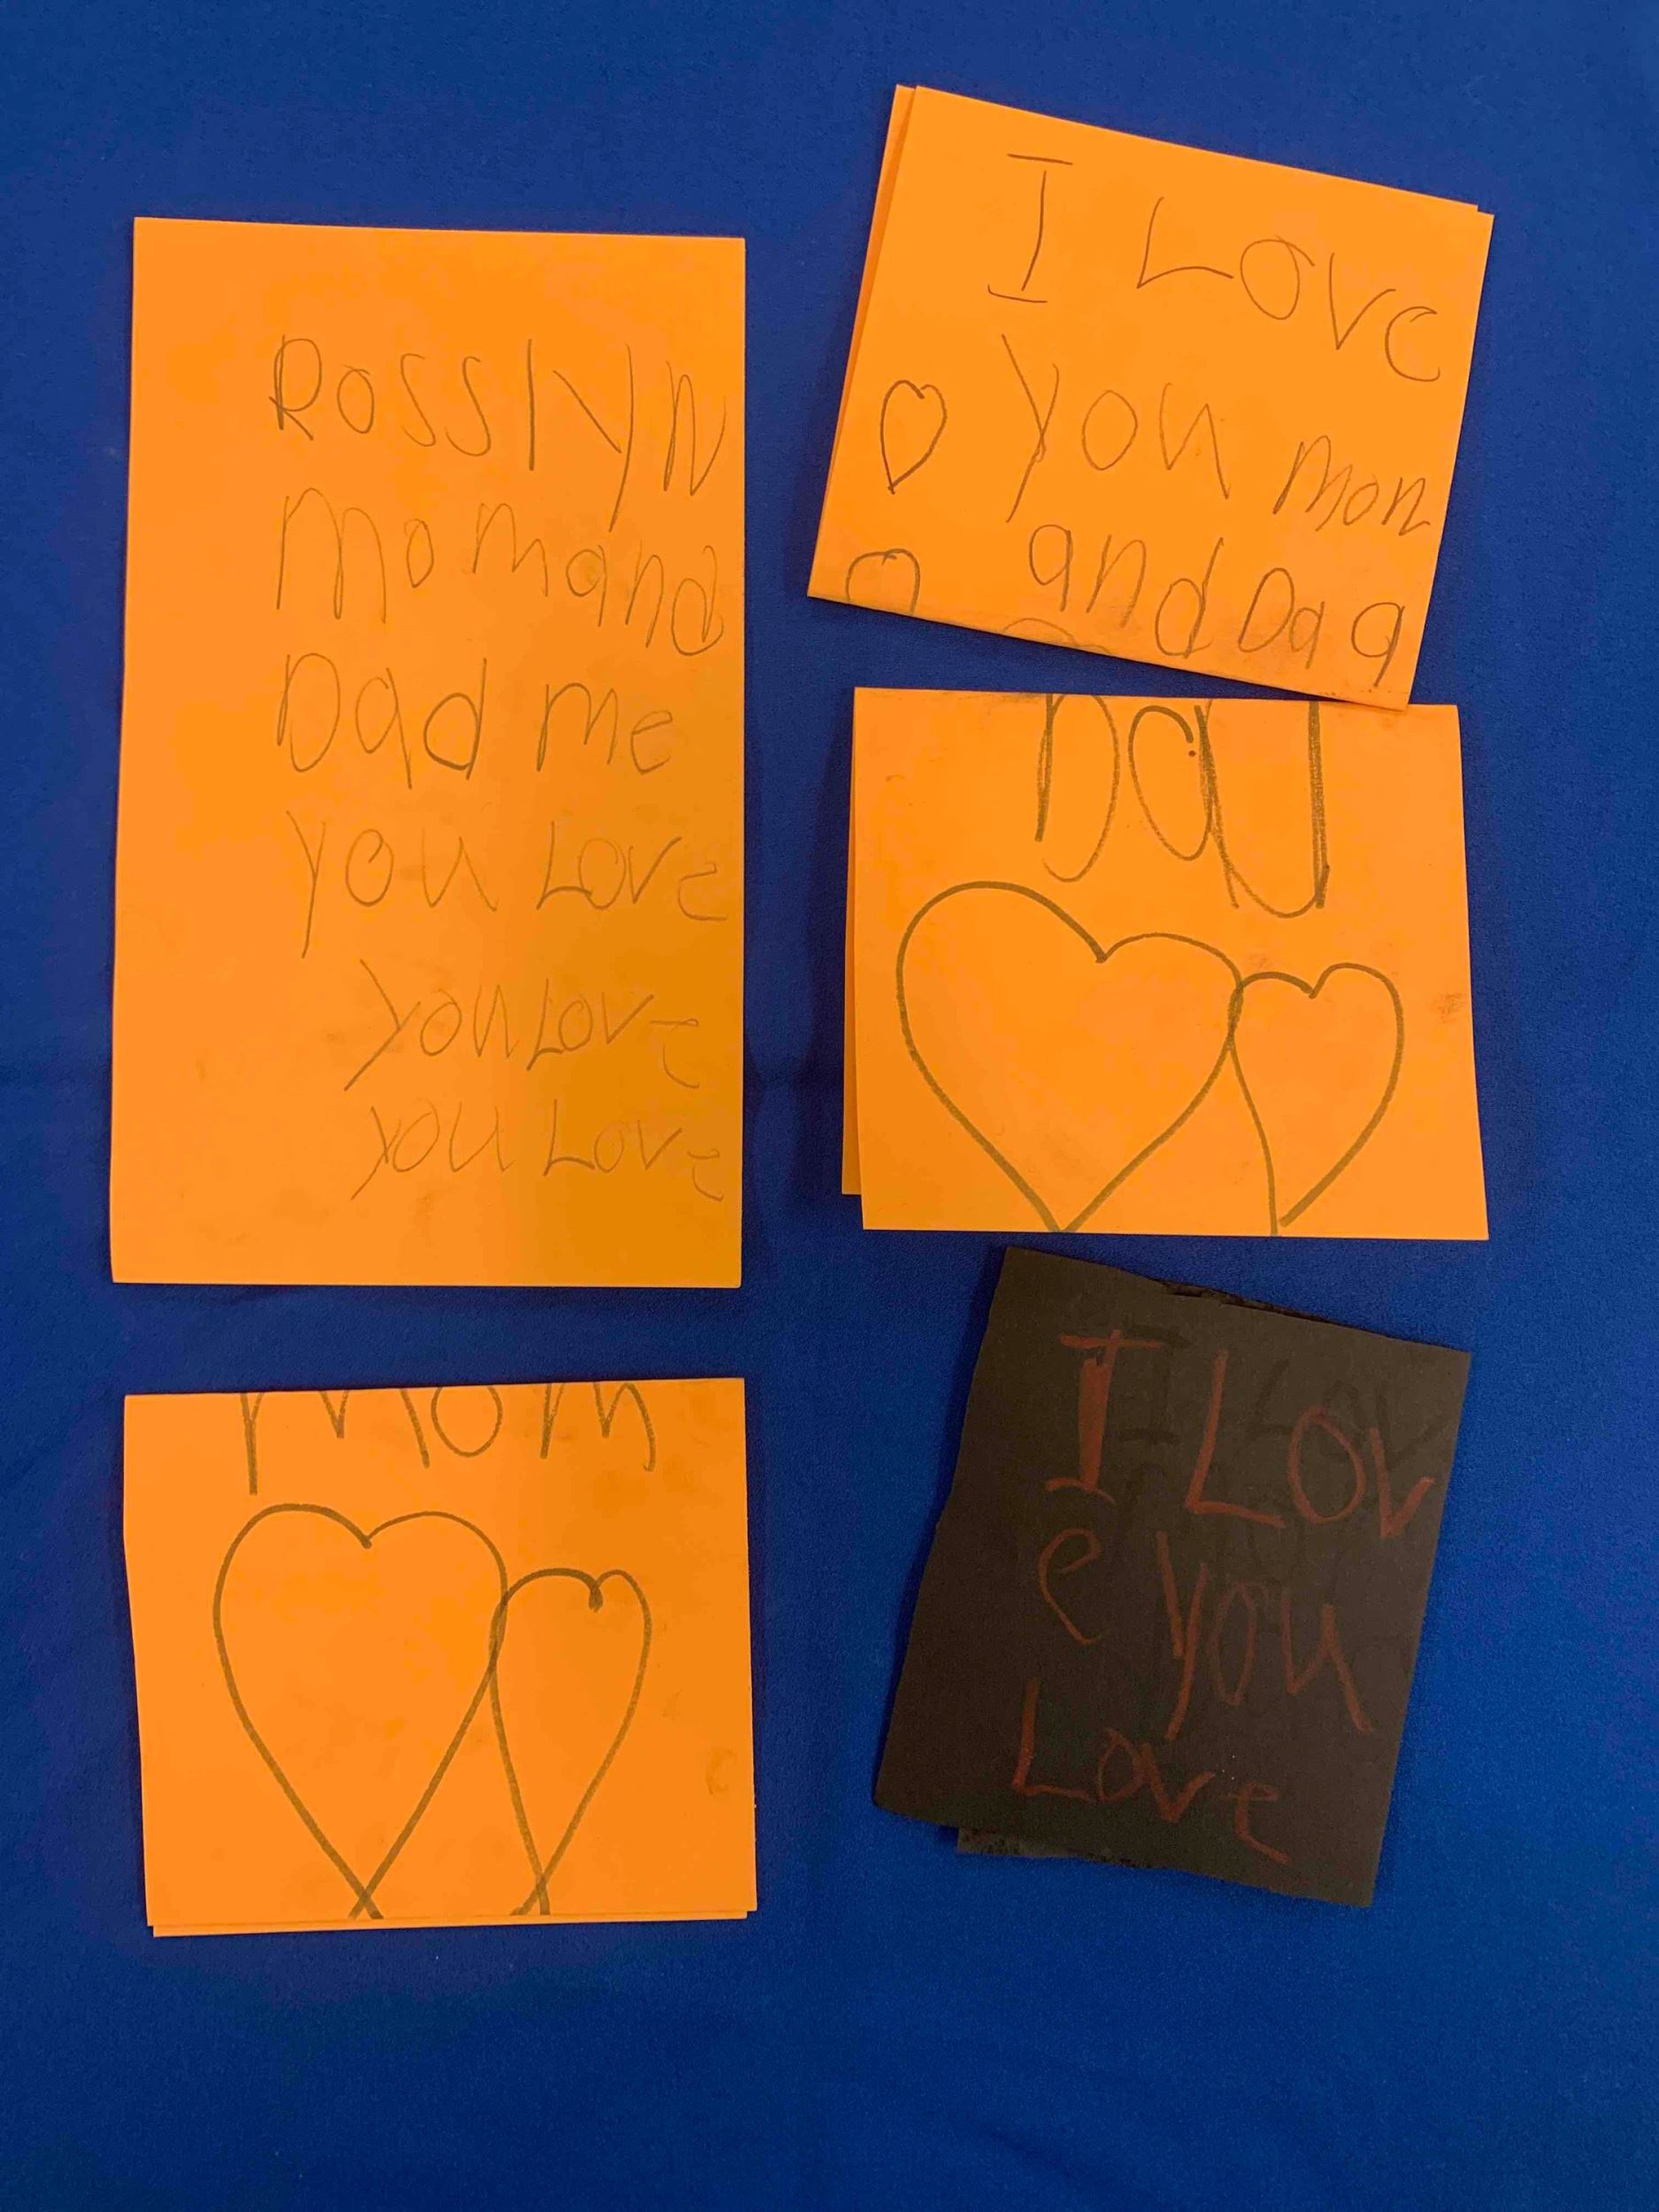 Rosslyn
mom and
Dad me
you Love
you Love
you Love
I Love
you mon
and Dad
Dad
mom
I Lov
e you
Love